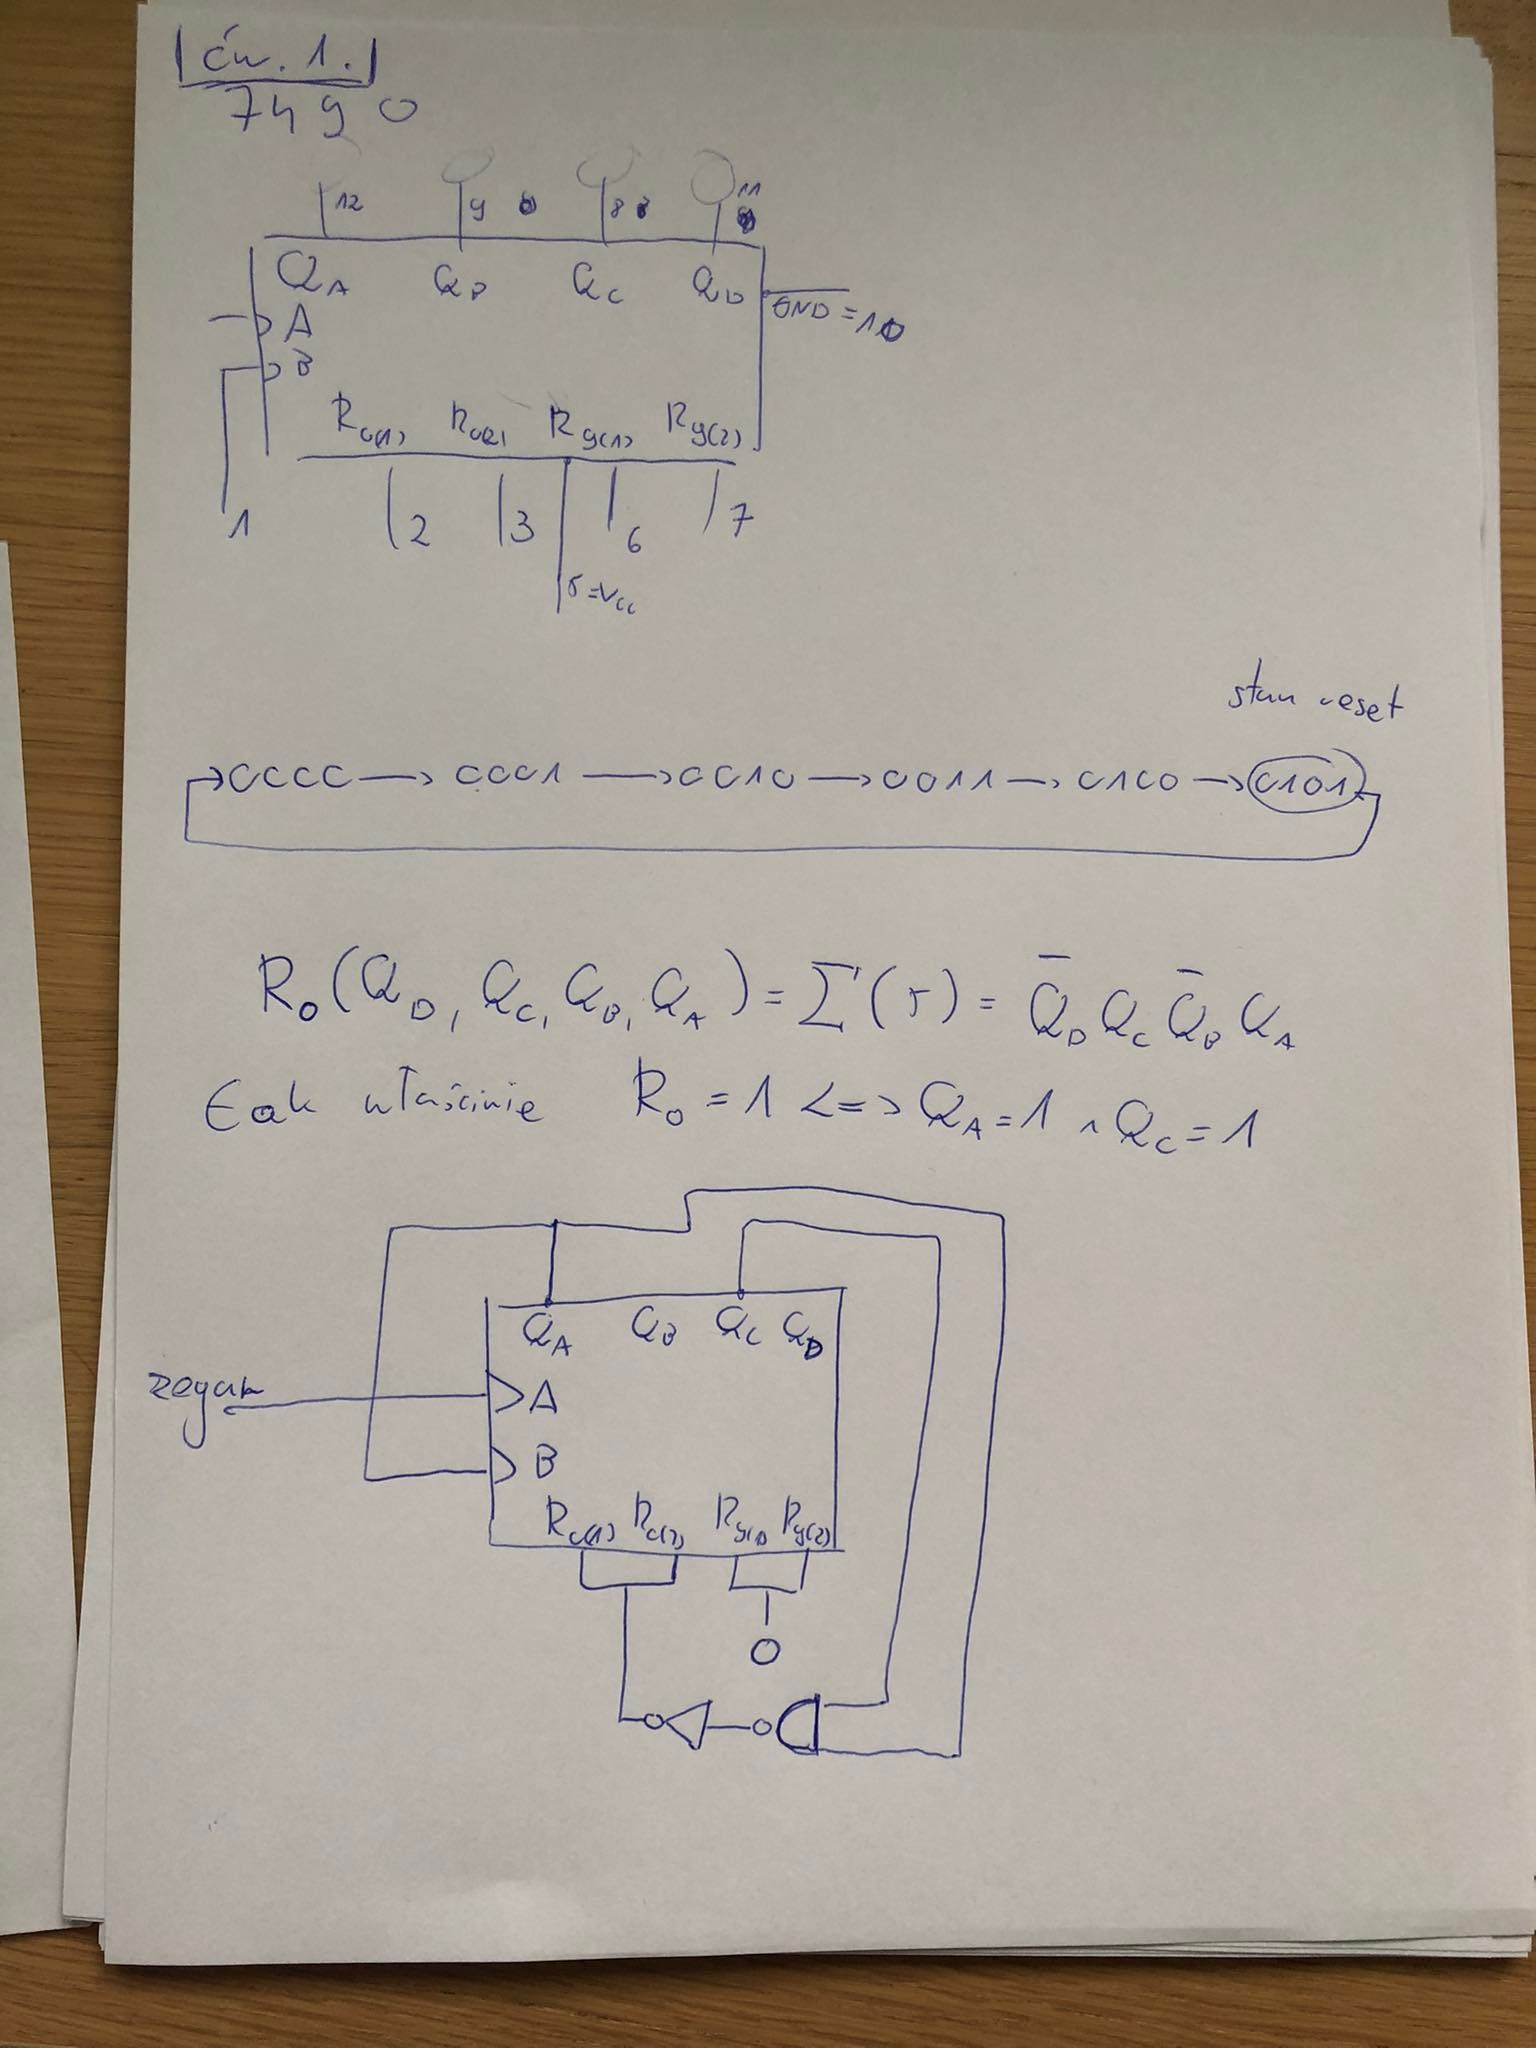 ćw. 1.
7490
12 9 8 11
Q_A Q_B Q_C Q_D
GND = 10
A
B
R_0(1) R_0(2) R_9(1) R_9(2)
1 2 3 6 7
5=Vcc
stan reset
0000 → 0001 → 0010 → 0011 → 0100 → 0101
R_0(Q_D, Q_C, Q_B, Q_A) = Σ(5) = Q̄_D Q_C Q̄_B Q_A
właściwie R_0 = 1 <=> Q_A = 1 ∧ Q_C = 1
Q_A Q_B Q_C Q_D
zegar A
B
R_0(1) R_0(2) R_9(1) R_9(2)
0